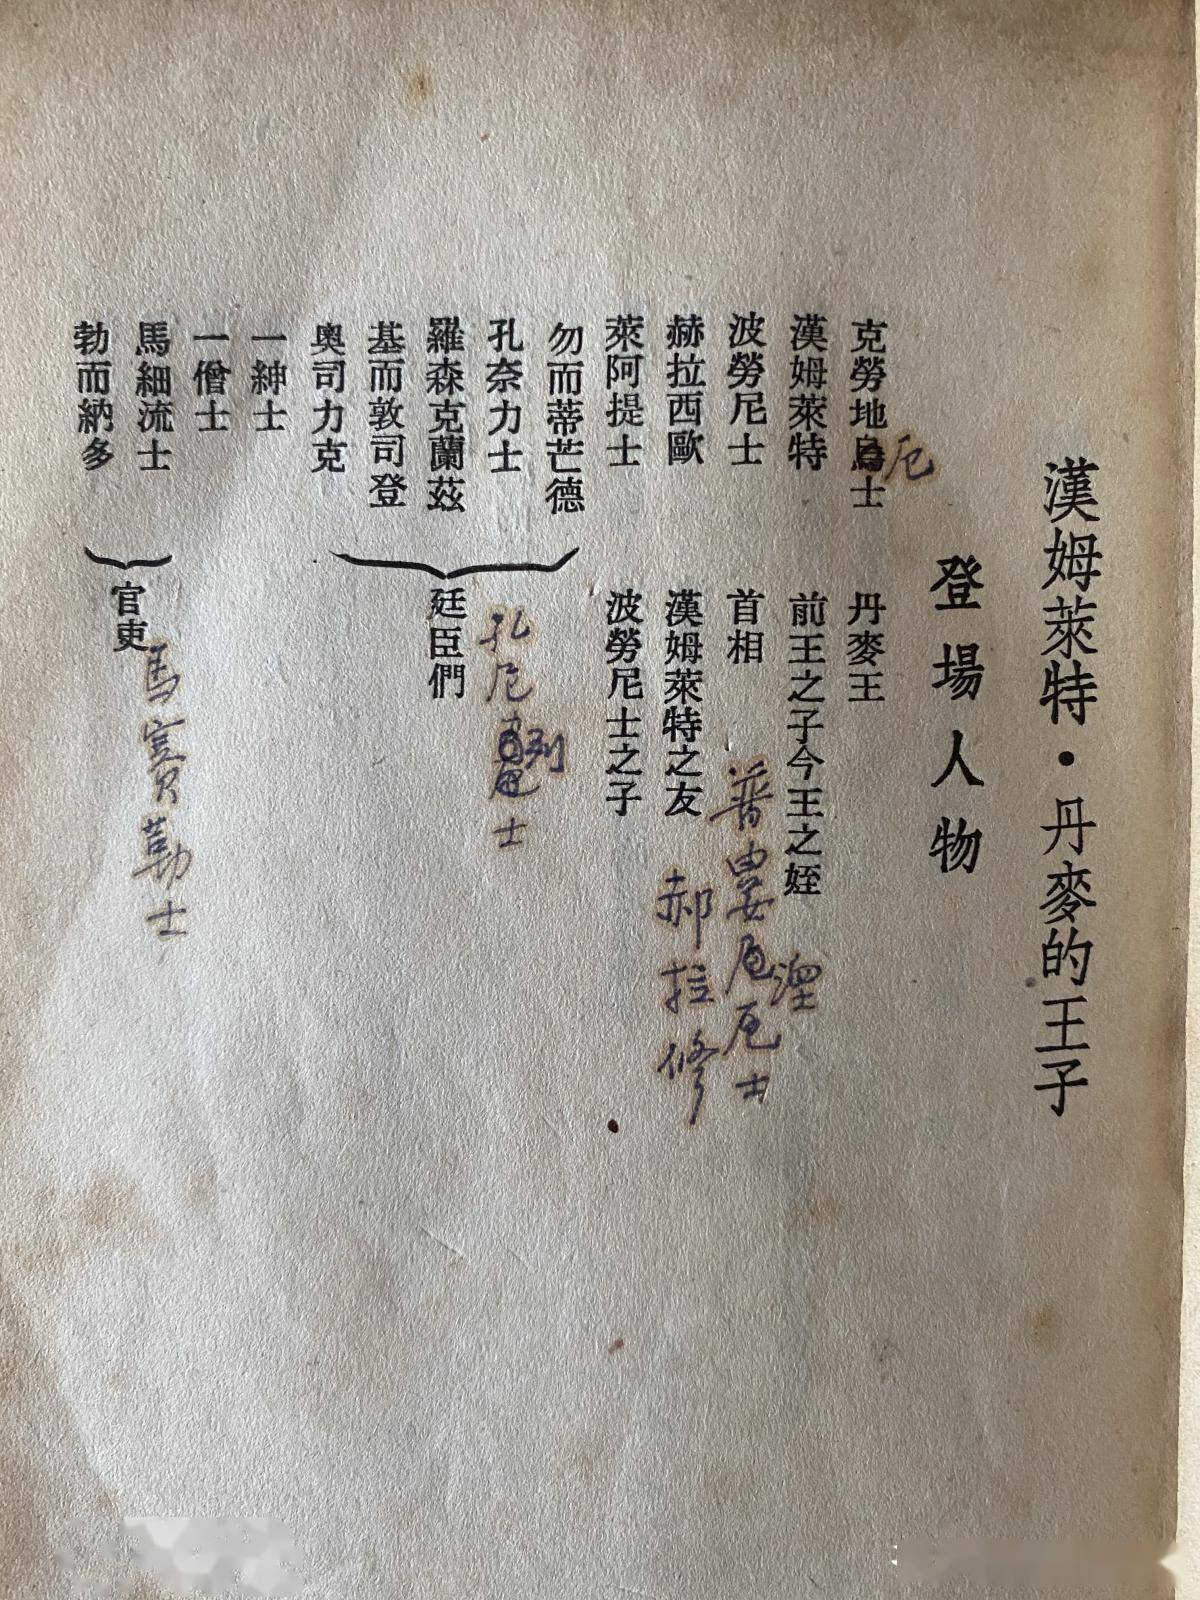 漢姆萊特·丹麥的王子
登場人物
克勞地烏士 丹麥王
厄
漢姆萊特 前王之子今王之姪
波勞尼士 首相
赫拉西歐 漢姆萊特之友
郝拉修
萊阿提士 波勞尼士之子
勿而蒂芒德
孔奈力士
羅森克蘭茲
基而敦司登
奧司力克
廷臣們
一紳士
一僧士
馬細流士
勃而納多
官吏
馬賽勒士